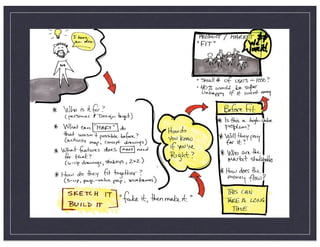 I have
an idea
* Who is it for?
(personas & design target)
* What can "MARY" do
that wasn't possible before?
(activity map, concept drawings)
* What features does MARY need
for that?
* How do they fit together?
SKETCH IT
BUILD IT
"fake it, then make it."
How do
you know
if you're
Right?
PRODUCT / MARKET
"FIT"
* Small # of users ~1000?
* 40% would be super
unhappy if it went away
Before Fit
* Is this a high-value
problem?
* Will they pay
for it?
* Who are the
market
* How does the
money flow?
THIS CAN
TAKE A LONG
TIME